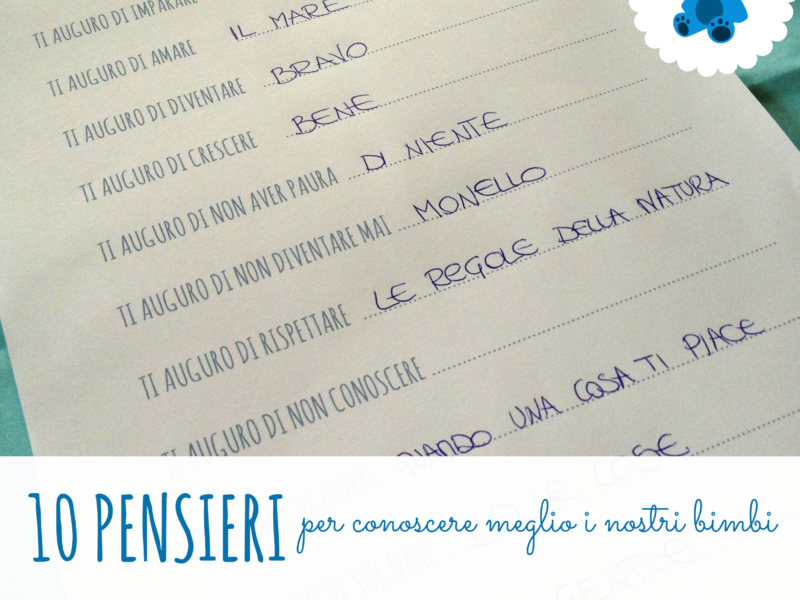 TI AUGURO DI IMPARARE
TI AUGURO DI AMARE IL MARE
TI AUGURO DI DIVENTARE BRAVO
TI AUGURO DI CRESCERE BENE
TI AUGURO DI NON AVER PAURA DI NIENTE
TI AUGURO DI NON DIVENTARE MAI MONELLO
TI AUGURO DI RISPETTARE LE REGOLE DELLA NATURA
TI AUGURO DI NON CONOSCERE
QUANDO UNA COSA TI PIACE
COSE
10 PENSIERI per conoscere meglio i nostri bimbi
GENTILE